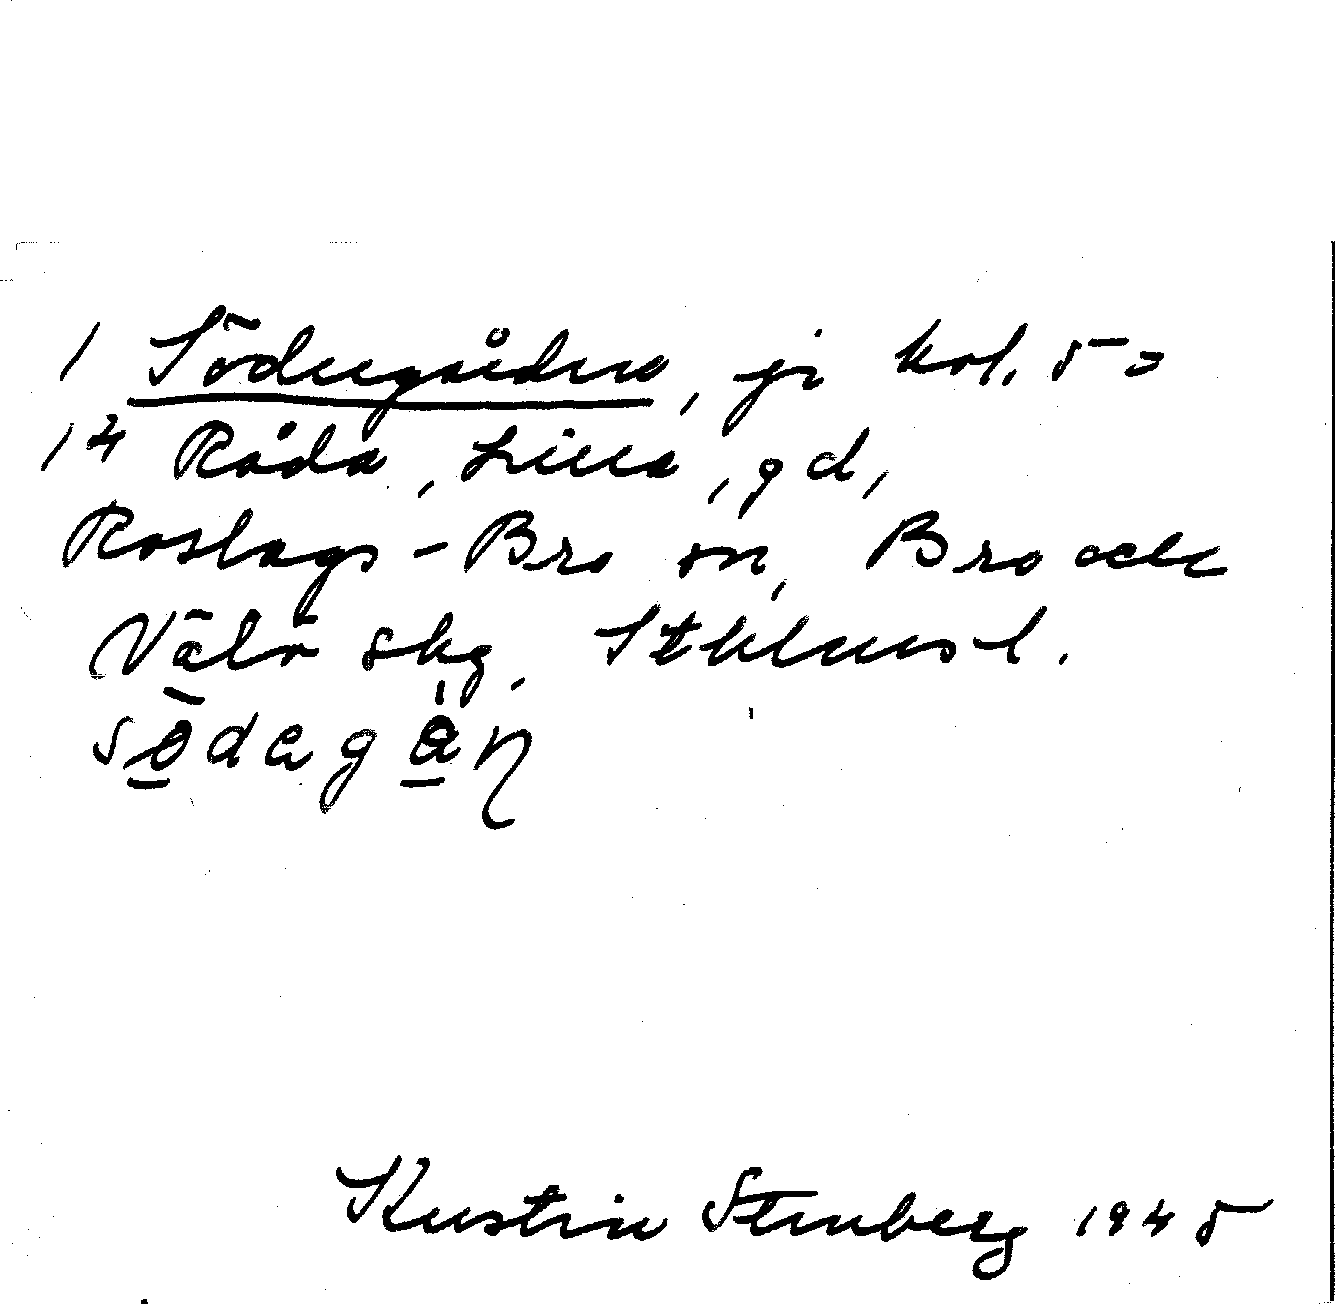 1 Södergården, ji kol. 5 =
14 Råda, Lilla, gd,
Roslags-Bro sn, Bro och
Vätö skg, Sthlms l.
södagån
Kerstin Stenberg 1945